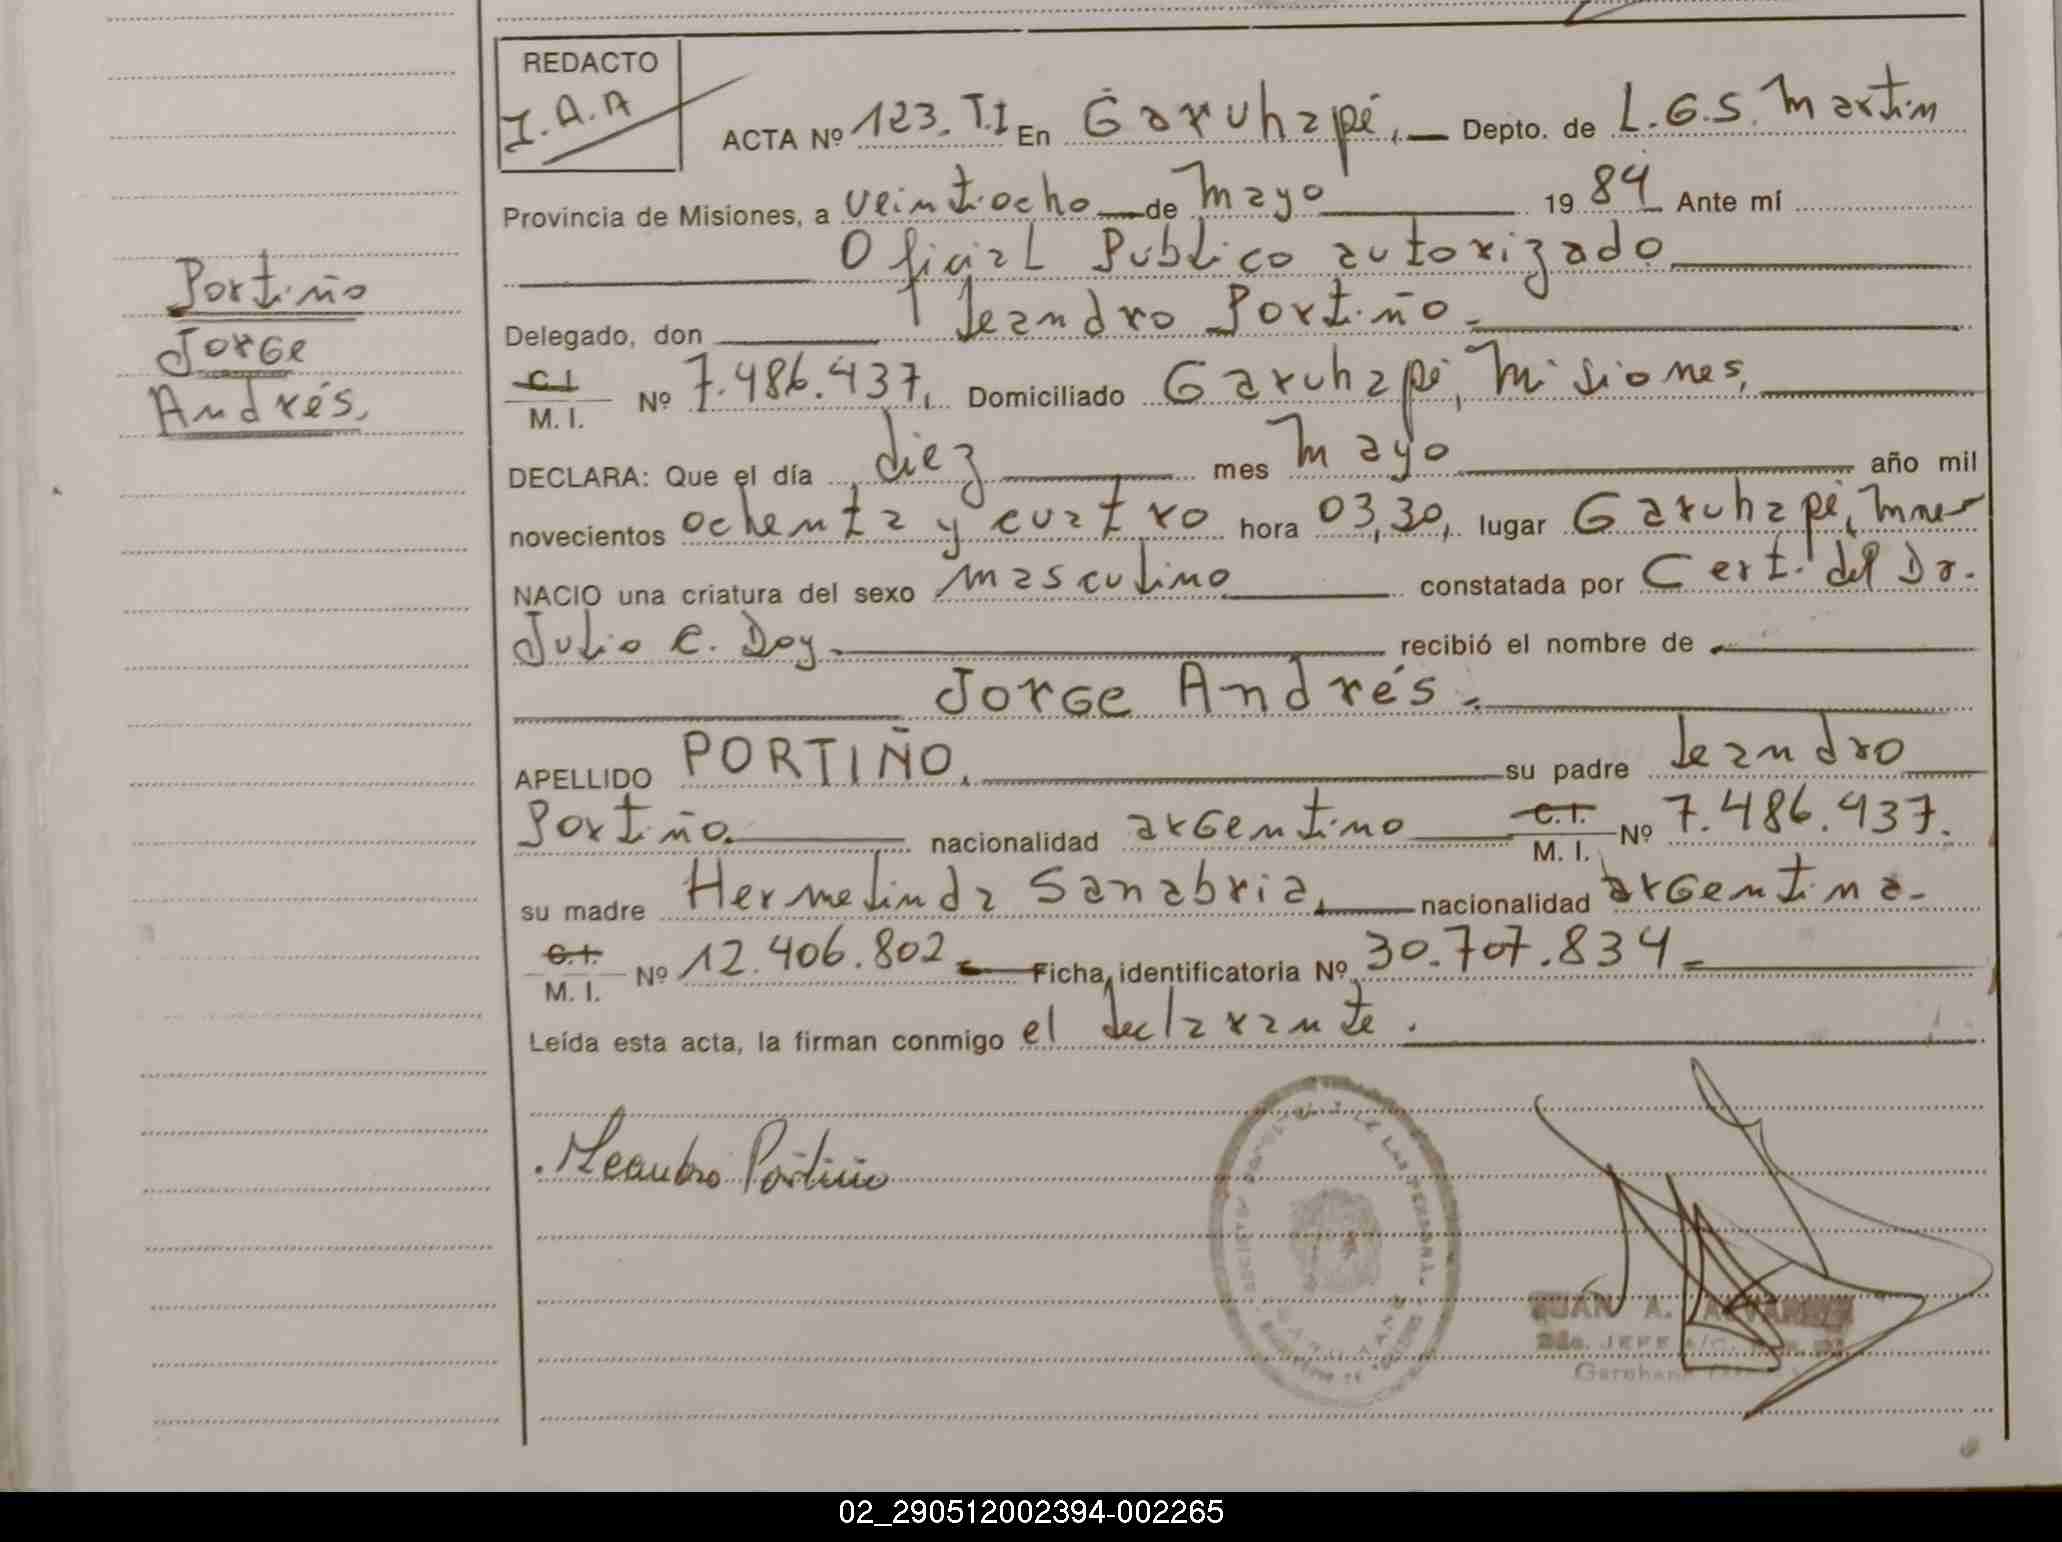 REDACTO
I.A.A
ACTA Nº 123. T.I En Garuhapé, Depto. de L.G.S. Martin
Provincia de Misiones, a veintiocho de Mayo 1984 Ante mí
Oficial Publico autorizado
Delegado, don Leandro Portiño.
C.I.
M. I. Nº 7.486.437, Domiciliado Garuhapé, Misiones,
DECLARA: Que el día diez mes Mayo año mil
novecientos ochenta y cuatro hora 03,30, lugar Garuhapé, Mnes
NACIO una criatura del sexo masculino constatada por Cert. del Dr.
Julio C. Doy. recibió el nombre de
Jorge Andrés.
APELLIDO PORTIÑO. su padre Leandro
Portiño. nacionalidad argentino C.I. M. I. Nº 7.486.437.
su madre Hermelinda Sanabria, nacionalidad argentina.
C.I. M. I. Nº 12.406.802 Ficha identificatoria Nº 30.707.834
Leída esta acta, la firman conmigo el declarante.
Portiño
Jorge
Andrés.
Leandro Portiño
JUAN A. ALVAREZ
JEFE A/C.
02_290512002394-002265